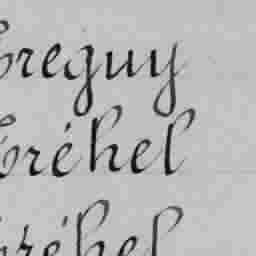 Treguy
Tréhel
Tréhel